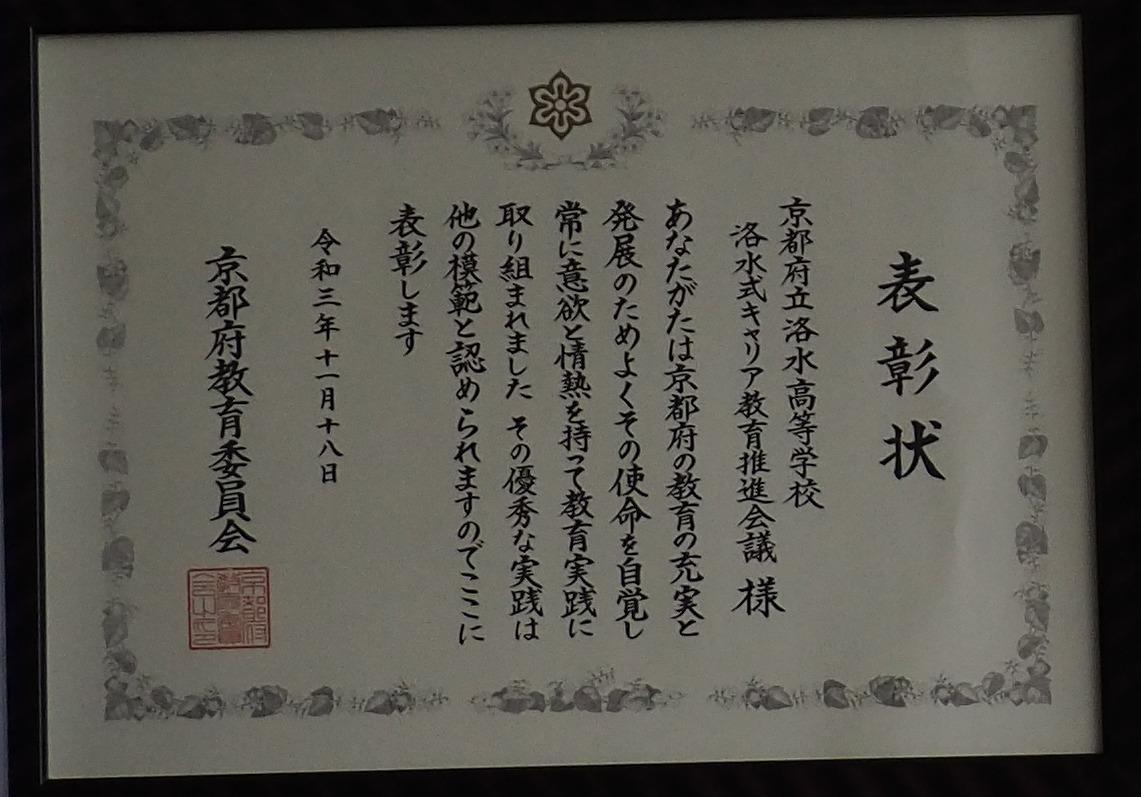 表彰状
京都府立洛水高等学校
洛水式キャリア教育推進会議 様
あなたがたは京都府の教育の充実と
発展のためよくその使命を自覚し
常に意欲と情熱を持って教育実践に
取り組まれました その優秀な実践は
他の模範と認められますのでここに
表彰します
令和三年十一月十八日
京都府教育委員会